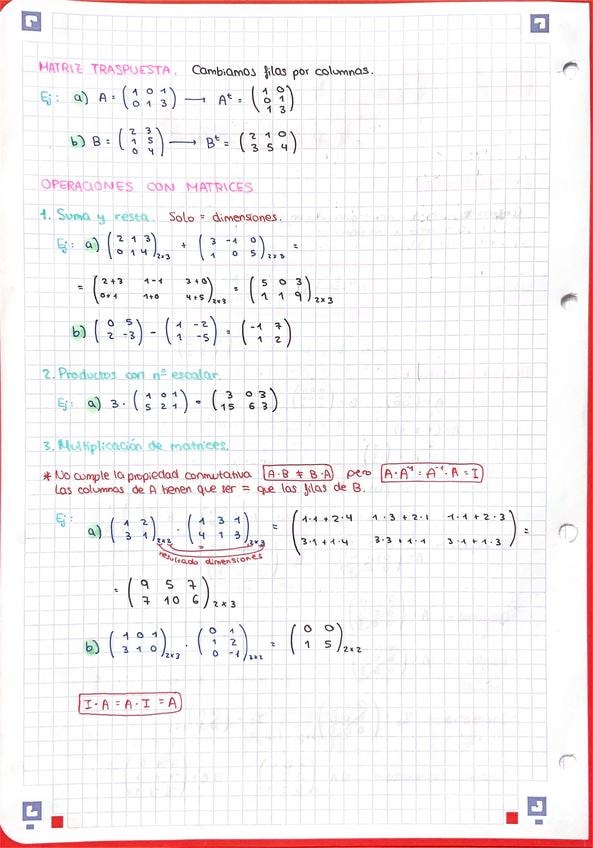 MATRIZ TRASPUESTA. Cambiamos filas por columnas.
Ej: a) A = (1 0 1 / 0 1 3) → Aᵗ = (1 0 / 0 1 / 1 3)
b) B = (2 3 / 1 5 / 0 4) → Bᵗ = (2 1 0 / 3 5 4)
OPERACIONES CON MATRICES
1. Suma y resta. Solo = dimensiones.
Ej: a) (2 1 3 / 0 1 4)₂ₓ₃ + (3 -1 0 / 1 0 5)₂ₓ₃ =
= (2+3 1-1 3+0 / 0+1 1+0 4+5)₂ₓ₃ = (5 0 3 / 1 1 9)₂ₓ₃
b) (0 5 / 2 -3) - (1 -2 / 1 -5) = (-1 7 / 1 2)
2. Productos con nº escalar.
Ej: a) 3 · (1 0 1 / 5 2 1) = (3 0 3 / 15 6 3)
3. Multiplicación de matrices.
* No cumple la propiedad conmutativa A·B ≠ B·A pero A·A⁻¹ = A⁻¹·A = I
Las columnas de A tienen que ser = que las filas de B.
Ej:
a) (1 2 / 3 1)₂ₓ₂ · (1 3 1 / 4 1 3)₂ₓ₃ = (1·1+2·4 1·3+2·1 1·1+2·3 / 3·1+1·4 3·3+1·1 3·1+1·3) =
resultado dimensiones
= (9 5 7 / 7 10 6)₂ₓ₃
b) (1 0 1 / 3 1 0)₂ₓ₃ · (0 1 / 1 2 / 0 -1)₃ₓ₂ = (0 0 / 1 5)₂ₓ₂
I·A = A·I = A